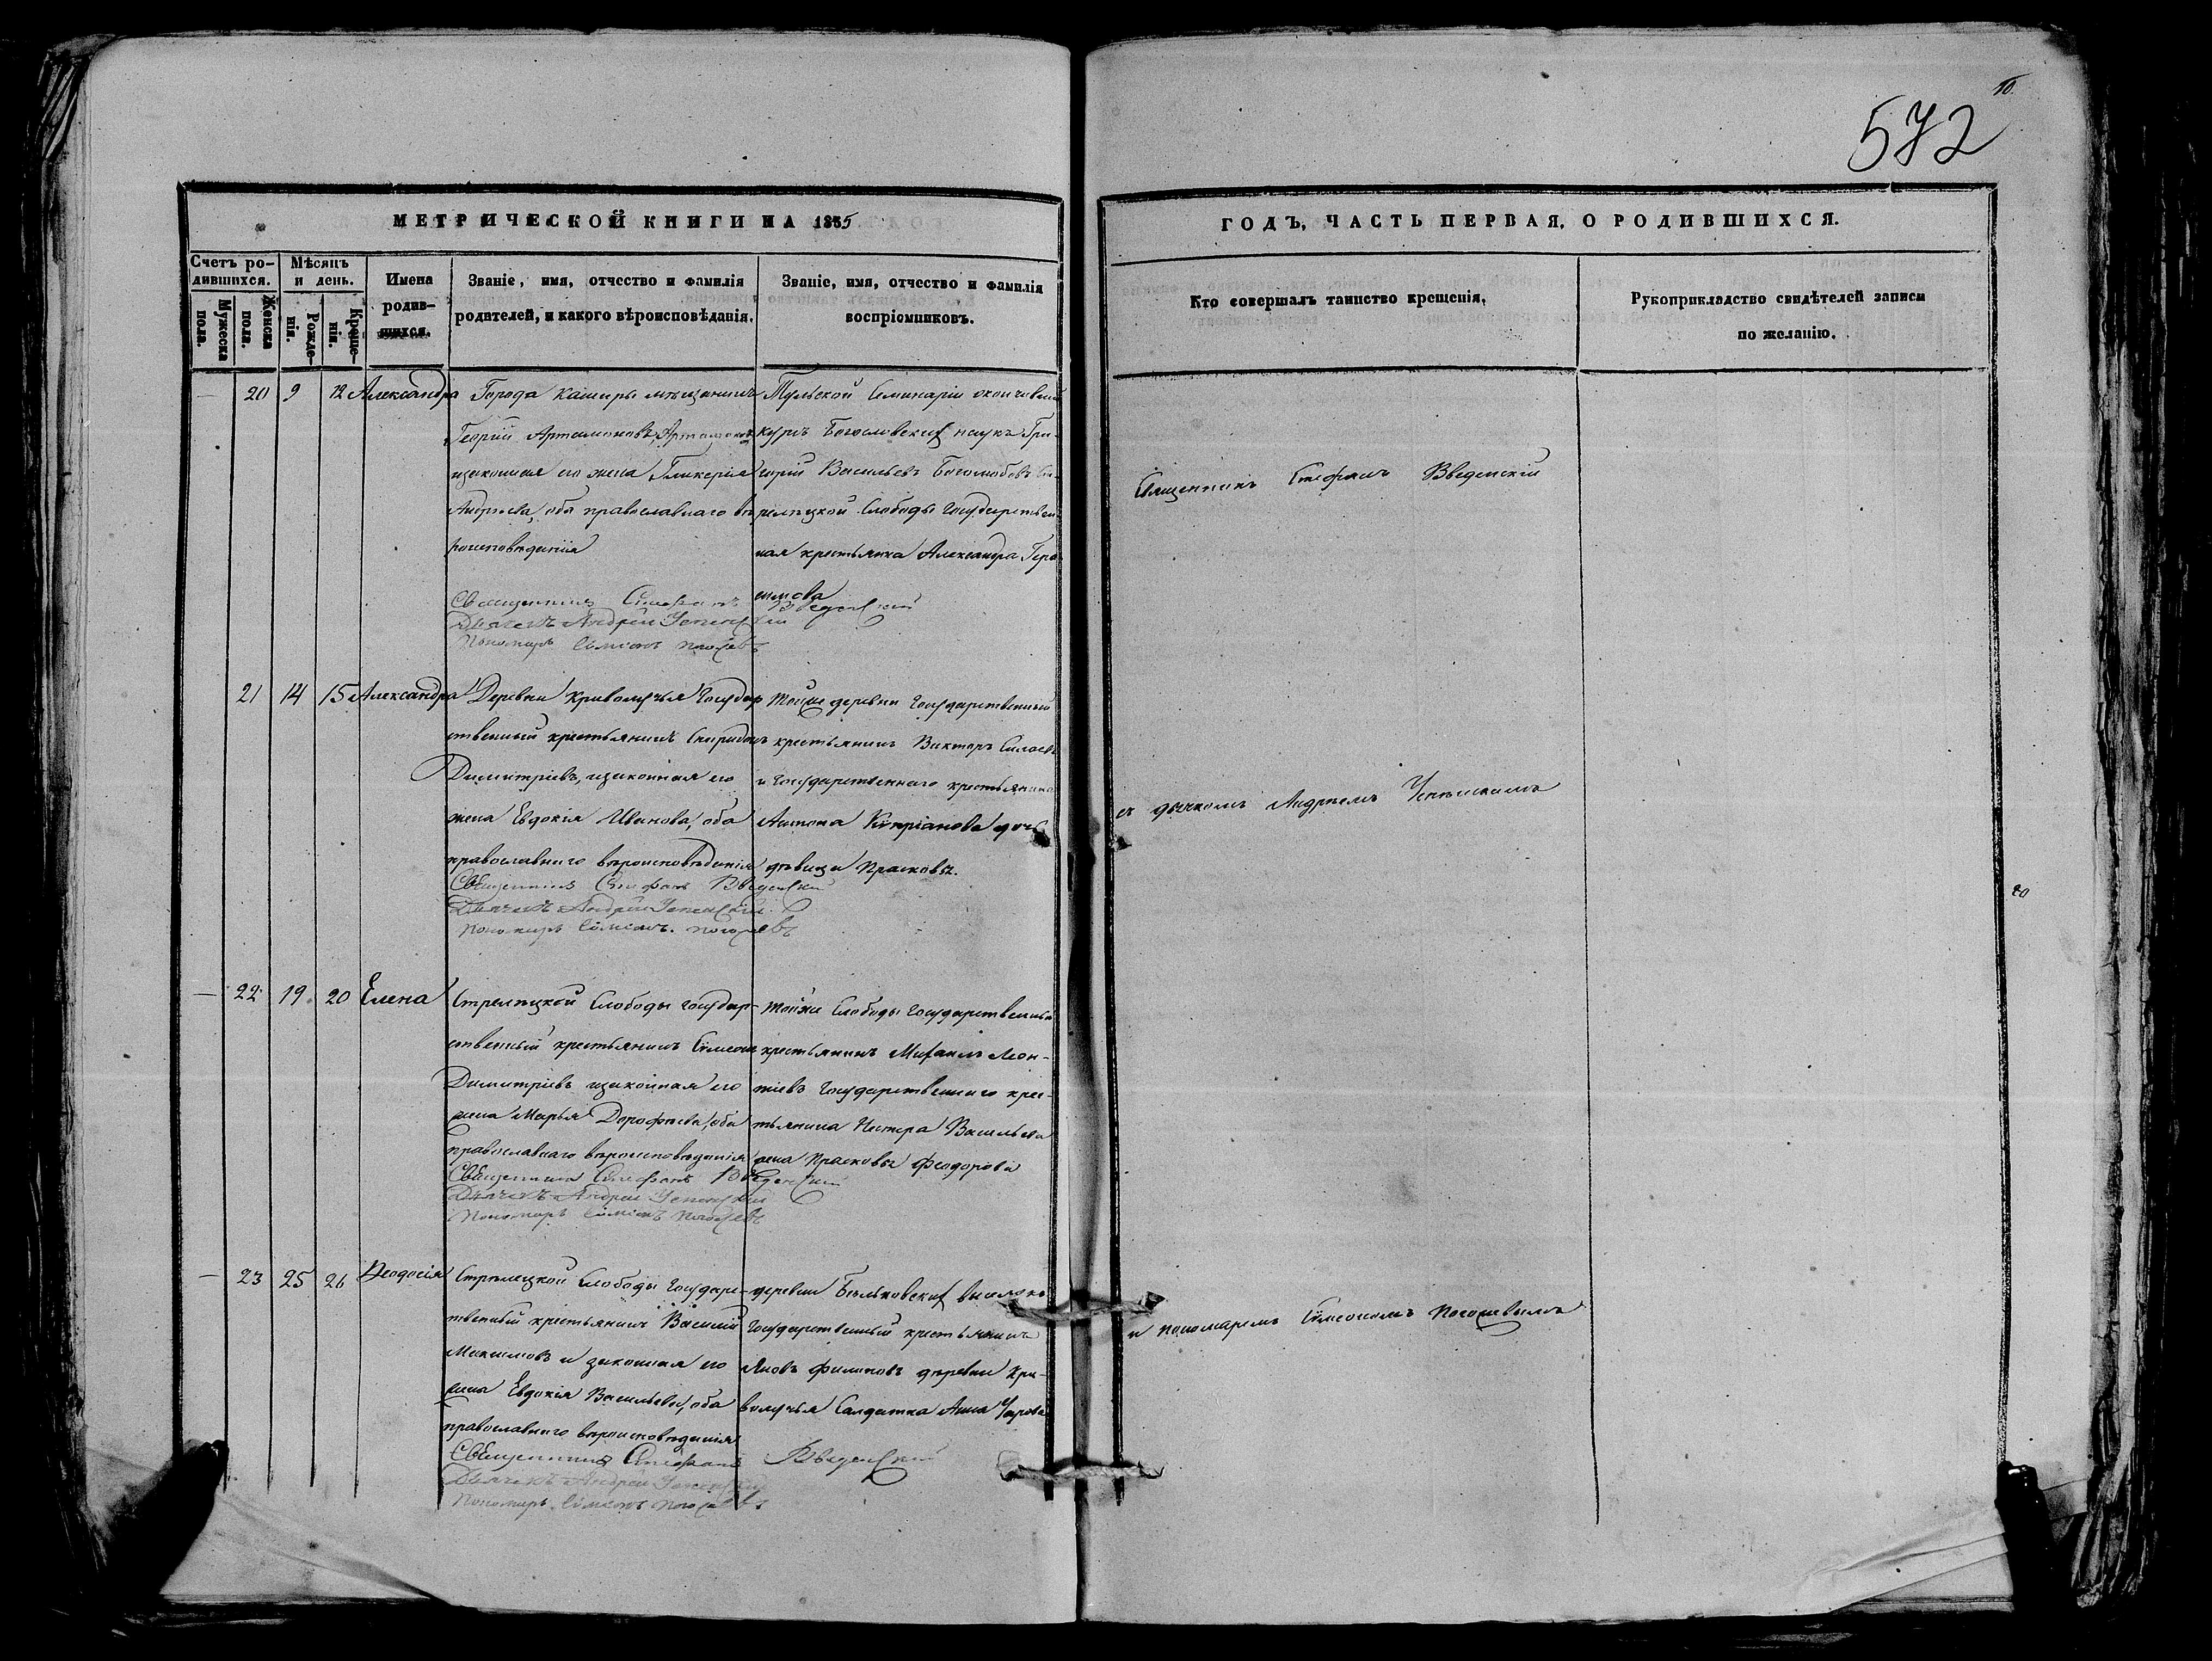 10.
572
МЕТРИЧЕСКОЙ КНИГИ НА 1855
ГОДЪ, ЧАСТЬ ПЕРВАЯ, О РОДИВШИХСЯ.
Счетъ родившихся.
Мужеска пола.
Женска пола.
Мѣсяцъ и день.
Рожденія.
Крещенія.
Имена родившихся.
Званіе, имя, отчество и фамилія
родителей, и какого вѣроисповѣданія.
Званіе, имя, отчество и фамилія
воспріемниковъ.
Кто совершалъ таинство крещенія.
Рукоприкладство свидѣтелей записи
по желанію.
— 20 9 12 Александра
Города Каширы мѣщанинъ
Георгій Артамоновъ Артамоновъ
изаконная его жена Гликерія
Андреева, оба православнаго вѣ
роисповѣданія
Тульской Семинаріи окончивши
курсъ Богословскихъ наукъ Гри-
горій Васильевъ Боголюбовъ
рѣлецкой Слободы государствен-
ная крестьянка Александра Гера-
симова
Священникъ Стефанъ Введенскій
Дьячекъ Андрей Успенскій
Пономарь Симеонъ Погожевъ
21 14 15 Александра
Деревни Криволучья Государ
ственный крестьянинъ Спиридонъ
Димитріевъ, изаконная его
жена Евдокія Иванова, оба
православнаго вѣроисповѣданія
Тойже деревни Государственный
крестьянинъ Викторъ Силаевъ
и государственнаго крестьянина
Антона Кипріанова дочь
дѣвица Прасковья.
Священникъ Стефанъ Введенскій
Дьячекъ Андрей Успенскій
Пономарь Симеонъ Погожевъ
— 22 19 20 Елена
Стрелецкой Слободы государ-
ственный крестьянинъ Симеонъ
Димитріевъ изаконная его
жена Марья Дорофѣева, оба
православнаго вѣроисповѣданія
Тойже Слободы Государственный
крестьянинъ Михаилъ Леон-
тіевъ Государственнаго крес-
тьянина Нестера Васильева
жена Прасковья Феодорова
Священникъ Стефанъ Введенскій
Дьячекъ Андрей Успенскій
Пономарь Симеонъ Погожевъ
— 23 25 26 Феодосія
Стрѣлецкой Слободы Государс-
твенный крестьянинъ Василій
Максимовъ и законная его
жена Евдокія Васильева, оба
православнаго вѣроисповѣданія
деревни Бѣльковскихъ выселокъ
Государственный крестьянинъ
Яковъ Филиповъ деревни Кри-
волучья Салдатка Анна
Священникъ Стефанъ Введенскій
Дьячекъ Андрей Успенскій
Пономарь Симеонъ Погожевъ
Священникъ Стефанъ Введенскій
съ дьячкомъ Андреемъ Успенскимъ
и пономаремъ Симеономъ Погожевымъ